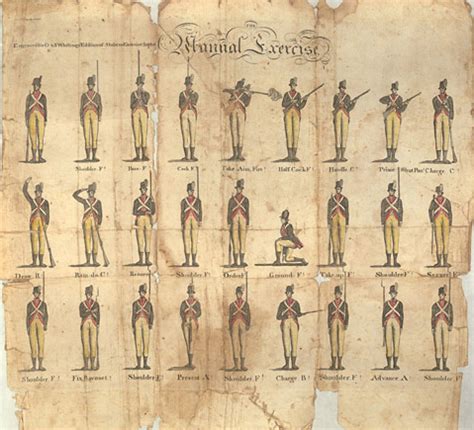 THE
Manual Exercise.
Shoulder F!
Poise F!
Cock F!
Take Aim, Fire!
Half Cock F!
Handle C!
Prime
Charge C!
Draw R!
Ram du C!
Return R!
Shoulder F!
Order F!
Ground F!
Take up F!
Shoulder F!
Secure F!
Shoulder F!
Fix Bayonet!
Shoulder F!
Present A
Shoulder F!
Charge B!
Shoulder F!
Advance A!
Shoulder F!